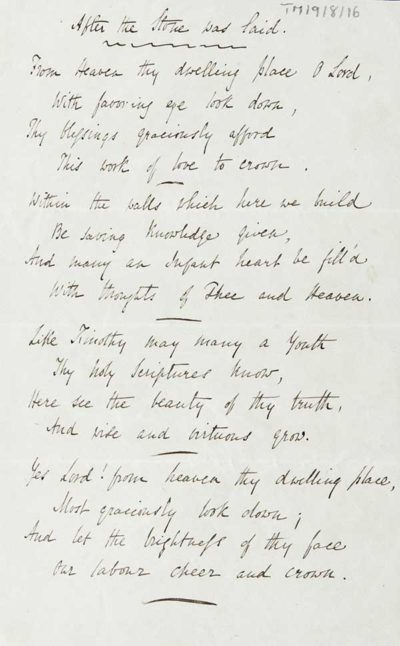 TM19/8/16
After the Stone was laid.
From Heaven thy dwelling place O Lord,
With favoring eye look down,
Thy blessings graciously afford
This work of love to crown.
Within the walls which here we build
Be saving knowledge given,
And many an Infant heart be fill'd
With thoughts of Thee and Heaven.
Like Timothy may many a Youth
Thy holy Scriptures know,
Here see the beauty of thy truth,
And wise and virtuous grow.
Yes Lord! from heaven thy dwelling place,
Most graciously look down;
And let the brightness of thy face
Our labour cheer and crown.